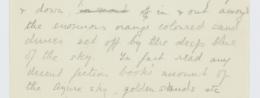 & down in & out always
the enormous orange coloured sand
dunes set off by the deep blue
of the sky. In fact read any
decent fiction books amount of
the azure sky - golden sands etc